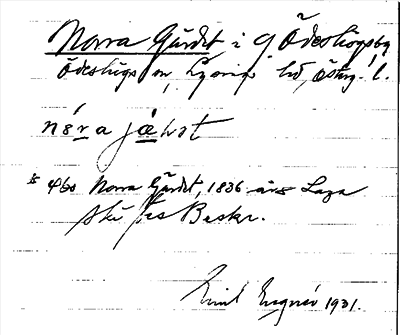 Norra Gärdet i Ödeshögsby
Ödeshögs sn, Lysings hd, Östg. l.
nó̱ra jæ̱ḷət
Norra Gärdet, 1836 års Laga
skiftes Beskr.
Emil 1931.